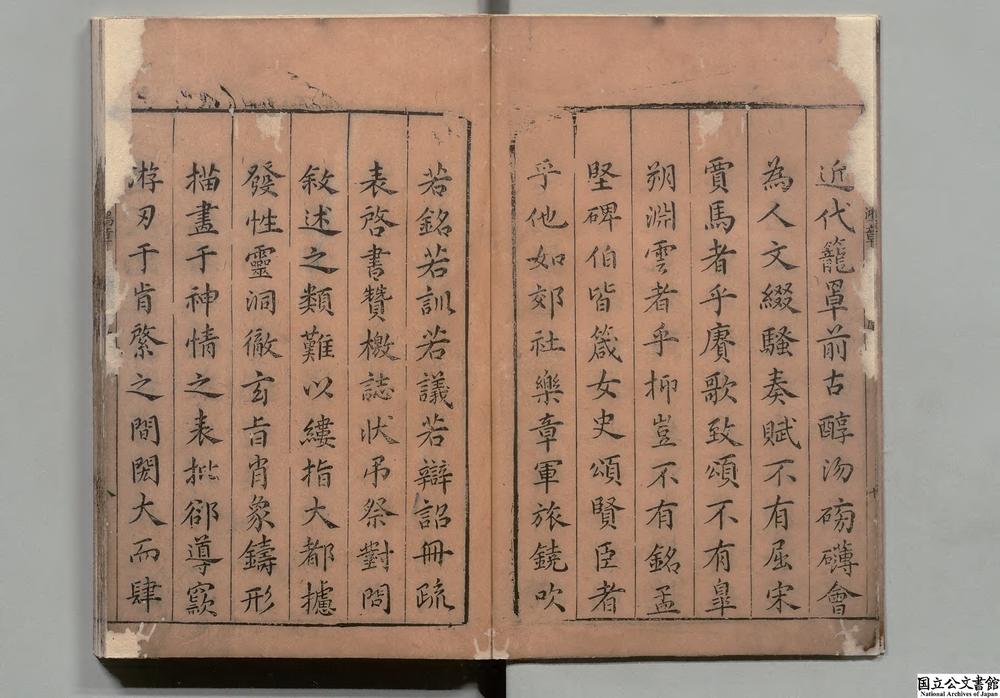 近代籠罩前古醇沕磅礴會
為人文綴騷奏賦不有屈宋
賈馬者乎賡歌致頌不有皐
朔淵雲者乎抑豈不有銘孟
堅碑伯皆箴女史頌賢臣者
乎他如郊社樂章軍旅鐃吹
若銘若訓若議若辯詔冊疏
表啓書贊檄誌狀弔祭對問
敘述之類難以縷指大都攄
發性靈洞徹玄旨肖象鑄形
描畫于神情之表批郤導窾
游刃于肯綮之間閎大而肆
国立公文書館
National Archives of Japan